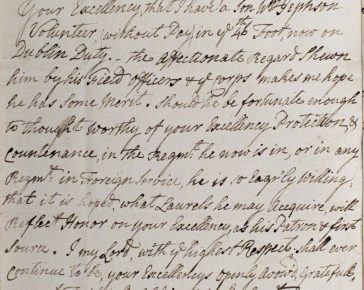 Your Excellency, that I have a Son Wm Jephson
Volunteer (without Pay) in ye 46 Foot, now on
Dublin Duty. – the affectionate Regard Shewn
him by his Field officers & ye Corps makes me hope
he has Some Merit. Should he be fortunate enough
to thought worthy of your Excellency Protection, &
Countenance, in the Regmt. he now is in, or in any
Regmt. in Foreign Service, he is so Eagrly willing
that it is hoped what Laurels he may Acquire, will
Reflect Honor on your Excellency, as his Patron & first
Source. I my Lord, with ye highest Respect, shall ever
Continue to be, your Excellencys openly Avow'd, Gratefull,